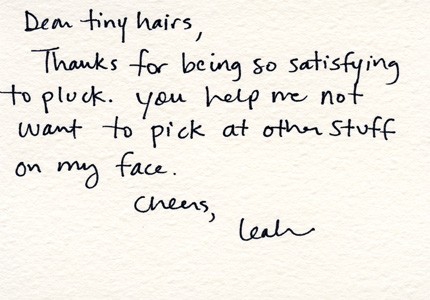 Dear tiny hairs,
Thanks for being so satisfying
to pluck. you help me not
want to pick at other stuff
on my face.
Cheers,
Leah